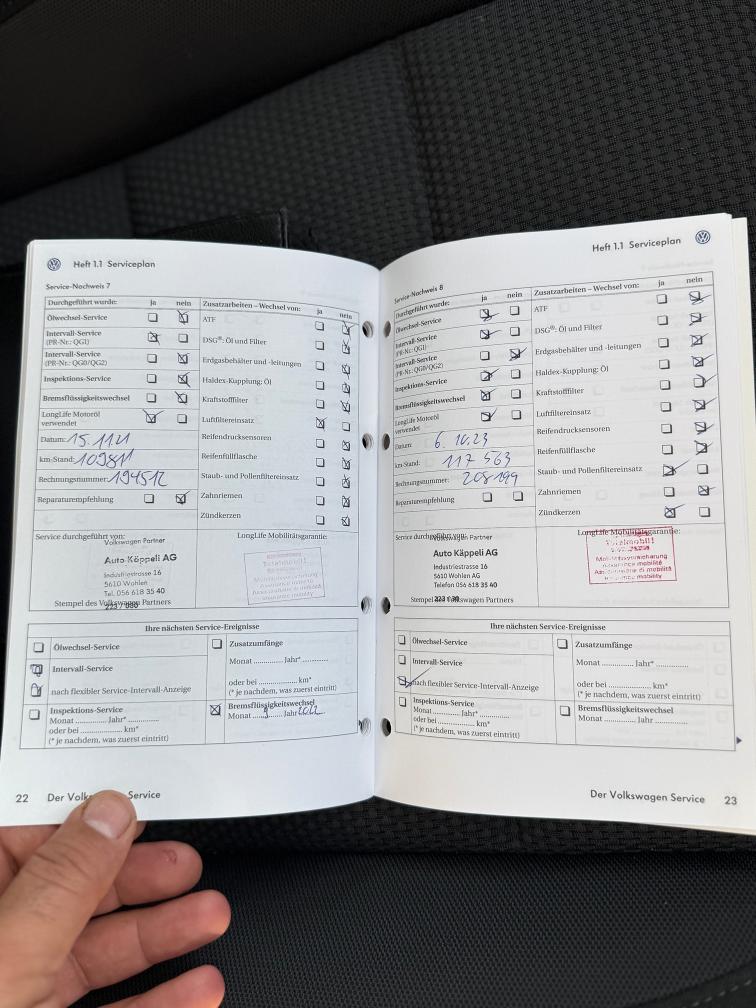 Heft 1.1 Serviceplan
Service-Nachweis 7
Durchgeführt wurde: ja nein
Zusatzarbeiten – Wechsel von: ja nein
Ölwechsel-Service
Intervall-Service
(PR-Nr.: QG1)
Intervall-Service
(PR-Nr.: QG0/QG2)
Inspektions-Service
Bremsflüssigkeitswechsel
LongLife Motoröl
verwendet
Datum: 15.11.21
km-Stand: 109811
Rechnungsnummer: 194512
Reparaturempfehlung
ATF
DSG®: Öl und Filter
Erdgasbehälter und -leitungen
Haldex-Kupplung: Öl
Kraftstofffilter
Luftfiltereinsatz
Reifendrucksensoren
Reifenfüllflasche
Staub- und Pollenfiltereinsatz
Zahnriemen
Zündkerzen
Service durchgeführt von:
LongLife Mobilitätsgarantie:
Volkswagen Partner
Auto Käppeli AG
Industriestrasse 16
5610 Wohlen
Tel. 056 618 35 40
Stempel des Volkswagen Partners
Totalmobil!
Ihre nächsten Service-Ereignisse
Ölwechsel-Service
Intervall-Service
nach flexibler Service-Intervall-Anzeige
Inspektions-Service
Monat ............ Jahr* ............
oder bei ............ km*
(* je nachdem, was zuerst eintritt)
Zusatzumfänge
Monat ............ Jahr* ............
oder bei ............ km*
(* je nachdem, was zuerst eintritt)
Bremsflüssigkeitswechsel
Monat 9 Jahr 2022
22 Der Volks Service
Heft 1.1 Serviceplan
Service-Nachweis 8
Durchgeführt wurde: ja nein
Zusatzarbeiten – Wechsel von: ja nein
Ölwechsel-Service
Intervall-Service
(PR-Nr.: QG1)
Intervall-Service
(PR-Nr.: QG0/QG2)
Inspektions-Service
Bremsflüssigkeitswechsel
LongLife Motoröl
verwendet
Datum: 6.10.23
km-Stand: 117 563
Rechnungsnummer: 208199
Reparaturempfehlung
ATF
DSG®: Öl und Filter
Erdgasbehälter und -leitungen
Haldex-Kupplung: Öl
Kraftstofffilter
Luftfiltereinsatz
Reifendrucksensoren
Reifenfüllflasche
Staub- und Pollenfiltereinsatz
Zahnriemen
Zündkerzen
Service durchgeführt von:
LongLife Mobilitätsgarantie:
Volkswagen Partner
Auto Käppeli AG
Industriestrasse 16
5610 Wohlen AG
Telefon 056 618 35 40
Stempel des Volkswagen Partners
Totalmobil!
Mobilitätsversicherung
Assurance mobilité
Assicurazione di mobilità
Insurance mobility
Ihre nächsten Service-Ereignisse
Ölwechsel-Service
Intervall-Service
nach flexibler Service-Intervall-Anzeige
Inspektions-Service
Monat ............ Jahr* ............
oder bei ............ km*
(* je nachdem, was zuerst eintritt)
Zusatzumfänge
Monat ............ Jahr* ............
oder bei ............ km*
(* je nachdem, was zuerst eintritt)
Bremsflüssigkeitswechsel
Monat ............ Jahr ............
Der Volkswagen Service 23